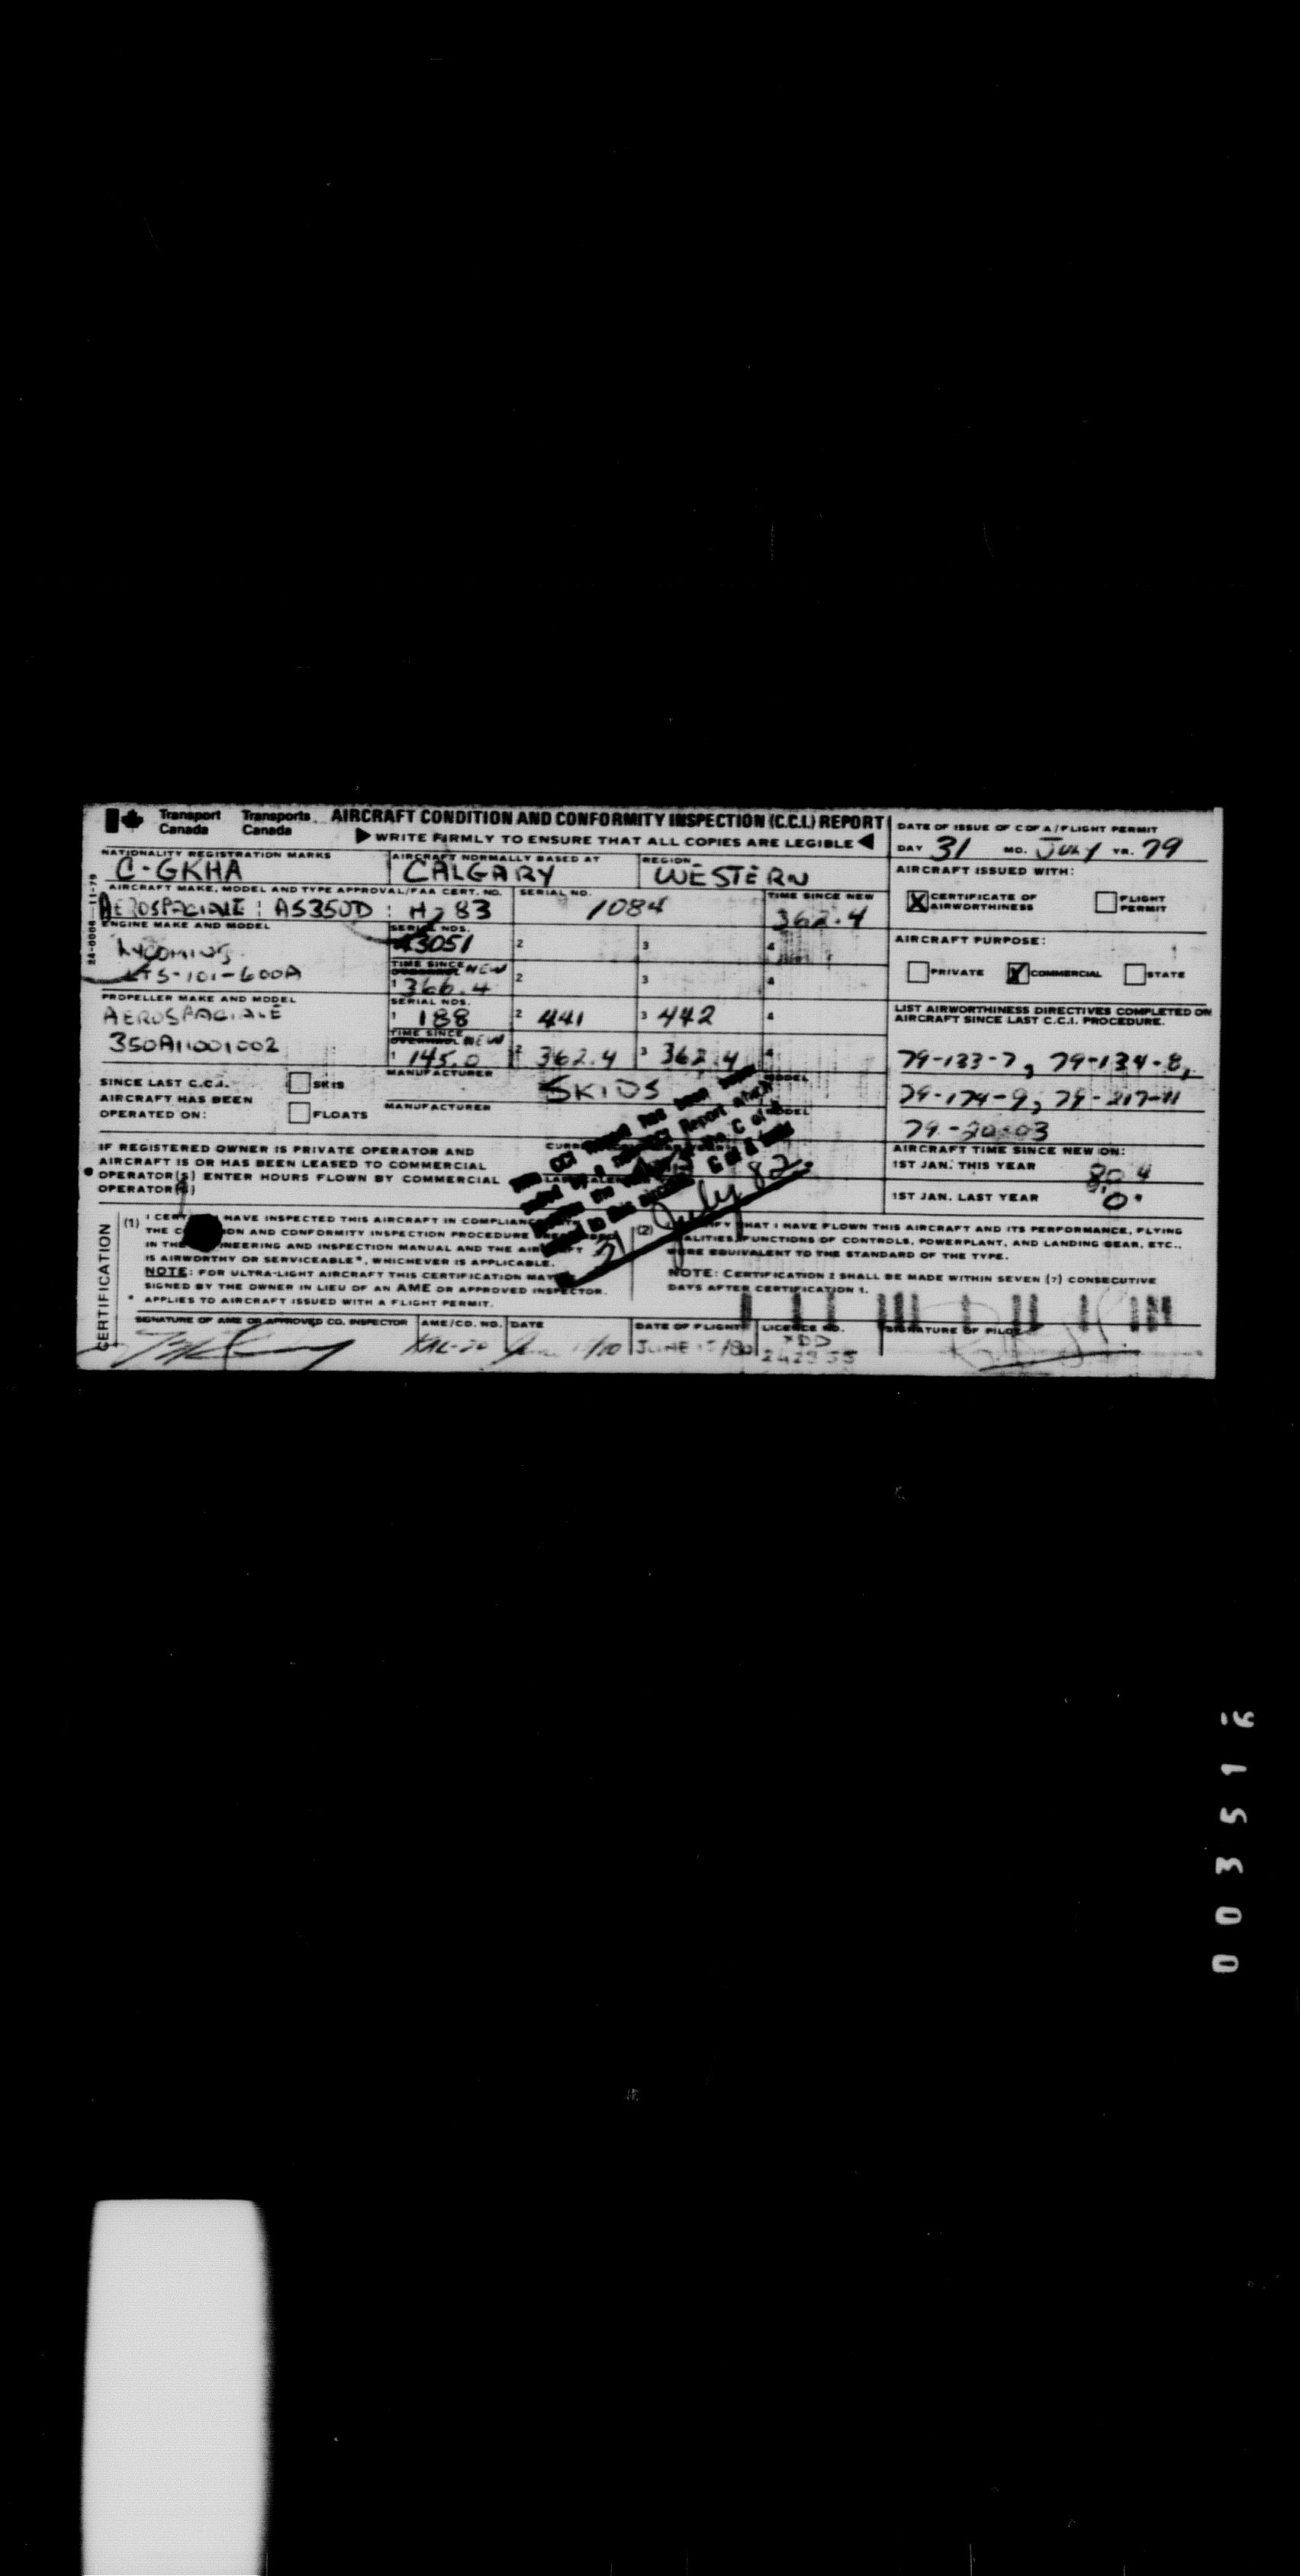 Transport Canada Transports Canada AIRCRAFT CONDITION AND CONFORMITY INSPECTION (C.C.I.) REPORT
▶WRITE FIRMLY TO ENSURE THAT ALL COPIES ARE LEGIBLE◀
DATE OF ISSUE OF C OF A/FLIGHT PERMIT
DAY 31 MO. JULY YR. 79
NATIONALITY REGISTRATION MARKS
C-GKHA
AIRCRAFT NORMALLY BASED AT
CALGARY
REGION
WESTERN
AIRCRAFT ISSUED WITH:
X CERTIFICATE OF AIRWORTHINESS
FLIGHT PERMIT
AIRCRAFT MAKE, MODEL AND TYPE APPROVAL/FAA CERT. NO.
AEROSPACIALE : AS350D : H 83
SERIAL NO.
1084
TIME SINCE NEW
362.4
24-0006 11-79
ENGINE MAKE AND MODEL
LYCOMING
LTS-101-600A
SERIAL NOS.
3051
2 3 4
TIME SINCE NEW
1 366.4
2 3 4
AIRCRAFT PURPOSE:
PRIVATE X COMMERCIAL STATE
PROPELLER MAKE AND MODEL
AEROSPACIALE
350A11001002
SERIAL NOS.
1 188 2 441 3 442 4
TIME SINCE NEW
1 145.0 2 362.4 3 362.4 4
LIST AIRWORTHINESS DIRECTIVES COMPLETED ON
AIRCRAFT SINCE LAST C.C.I. PROCEDURE.
79-133-7, 79-134-8,
79-174-9, 79-217-11
79-20-03
SINCE LAST C.C.I.
AIRCRAFT HAS BEEN
OPERATED ON:
SKIS
FLOATS
MANUFACTURER
SKIDS
MODEL
MANUFACTURER
MODEL
IF REGISTERED OWNER IS PRIVATE OPERATOR AND
AIRCRAFT IS OR HAS BEEN LEASED TO COMMERCIAL
OPERATOR(S) ENTER HOURS FLOWN BY COMMERCIAL
OPERATOR(S)
31 July 82
AIRCRAFT TIME SINCE NEW ON:
1ST JAN. THIS YEAR 80.4
1ST JAN. LAST YEAR 0.
CERTIFICATION
(1) I HAVE INSPECTED THIS AIRCRAFT IN
THE AND CONFORMITY INSPECTION PROCEDURE
IN THE AND INSPECTION MANUAL AND THE
IS AIRWORTHY OR SERVICEABLE*, WHICHEVER IS APPLICABLE.
NOTE: FOR ULTRA-LIGHT AIRCRAFT THIS CERTIFICATION MAY
SIGNED BY THE OWNER IN LIEU OF AN AME OR APPROVED INSPECTOR.
* APPLIES TO AIRCRAFT ISSUED WITH A FLIGHT PERMIT.
(2) THAT I HAVE FLOWN THIS AIRCRAFT AND ITS PERFORMANCE, FLYING
FUNCTIONS OF CONTROLS, POWERPLANT, AND LANDING GEAR, ETC.,
WERE EQUIVALENT TO THE STANDARD OF THE TYPE.
NOTE: CERTIFICATION 2 SHALL BE MADE WITHIN SEVEN (7) CONSECUTIVE
DAYS AFTER CERTIFICATION 1.
SIGNATURE OF AME OR APPROVED CO. INSPECTOR
AME/CO. NO.
DATE
DATE OF FLIGHT
JUNE /80
LICENCE NO.
SIGNATURE OF PILOT
003516